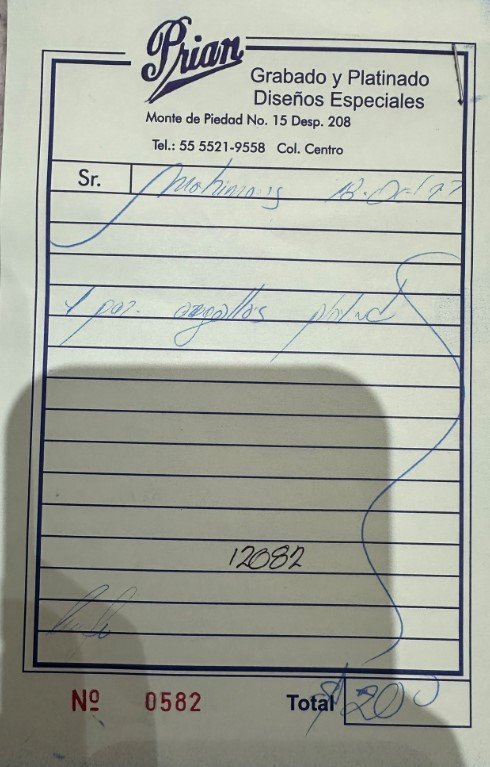 Prian
Grabado y Platinado
Diseños Especiales
Monte de Piedad No. 15 Desp. 208
Tel.: 55 5521-9558 Col. Centro
Sr.
1 par
12082
Nº 0582 Total $ 200